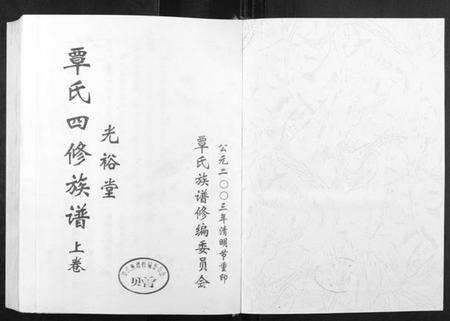 公元二〇〇三年清明节重印
覃氏族谱修编委员会
光裕堂
覃氏四修族谱 上卷